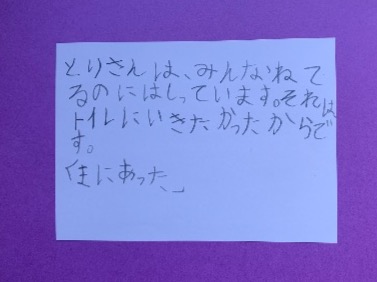 とりさんは、みんなねて
るのにはしっています。それは
トイレにいきたかったからで
す。
にあった、